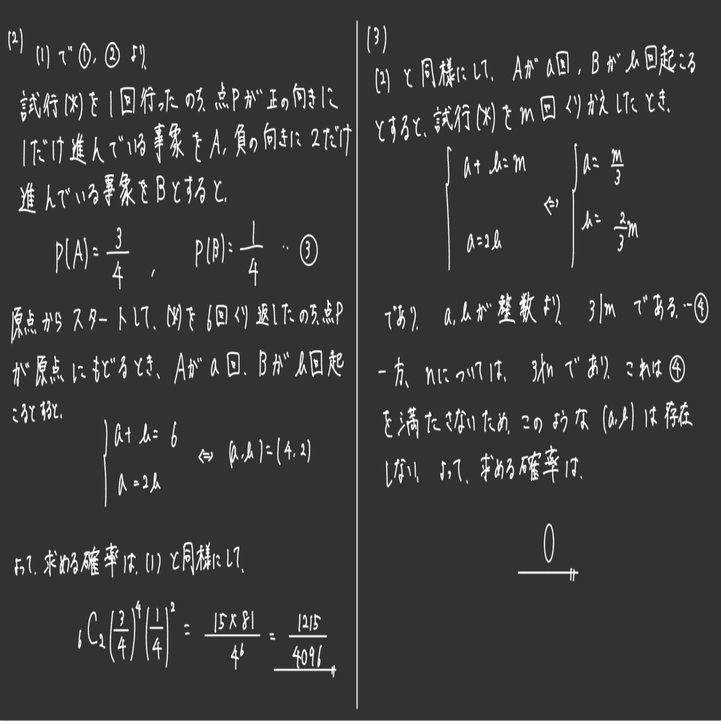 (2)
(1)で①,②より
試行(※)を1回行ったのち、点Pが正の向きに
1だけ進んでいる事象をA,負の向きに2だけ
進んでいる事象をBとすると、
P(A)=3/4 , P(B)=1/4 ‥③
原点からスタートして、(※)を6回くり返したのち、点P
が原点にもどるとき、Aがa回、Bがb回起
こるとすると、
{a+b=6
a=2b ⇔ (a,b)=(4,2)
よって、求める確率は、(1)と同様にして、
₆C₂(3/4)⁴(1/4)² = 15×81/4⁶ = 1215/4096
(3)
(2)と同様にして、Aがa回,Bがb回起こる
とすると、試行(※)をm回くりかえしたとき、
{a+b=m
a=2b ⇔ {a=m/3
b=2/3m
であり、a,bが整数より、3|mである‥④
一方、nについては、3∤nであり、これは④
を満たさないため、このような(a,b)は存在
しない。よって、求める確率は、
0